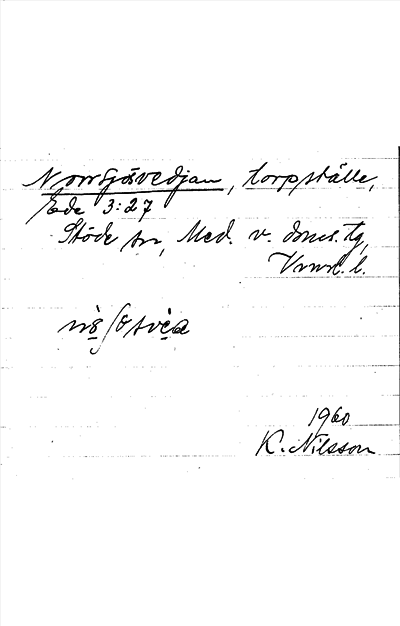 Norrsjövedjan, torpställe,
Ede 3:27
Stöde sn, Med. v. doms. tg,
Vnrl. l.
1960
K. Nilsson